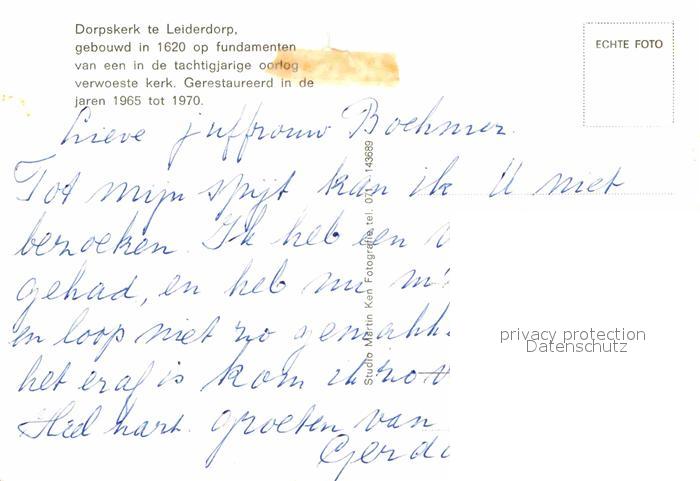 Dorpskerk te Leiderdorp,
gebouwd in 1620 op fundamenten
van een in de tachtigjarige oorlog
verwoeste kerk. Gerestaureerd in de
jaren 1965 tot 1970.
ECHTE FOTO
Lieve juffrouw Boehmer.
Tot mijn spijt kan ik U niet
bezoeken. Ik heb een
gehad, en heb nu
en loop niet zo
het eraf is kom ik
Heel hart. groeten van
Gerda
Studio Martin Ken Fotografie, tel. 071 - 143689
privacy protection
Datenschutz